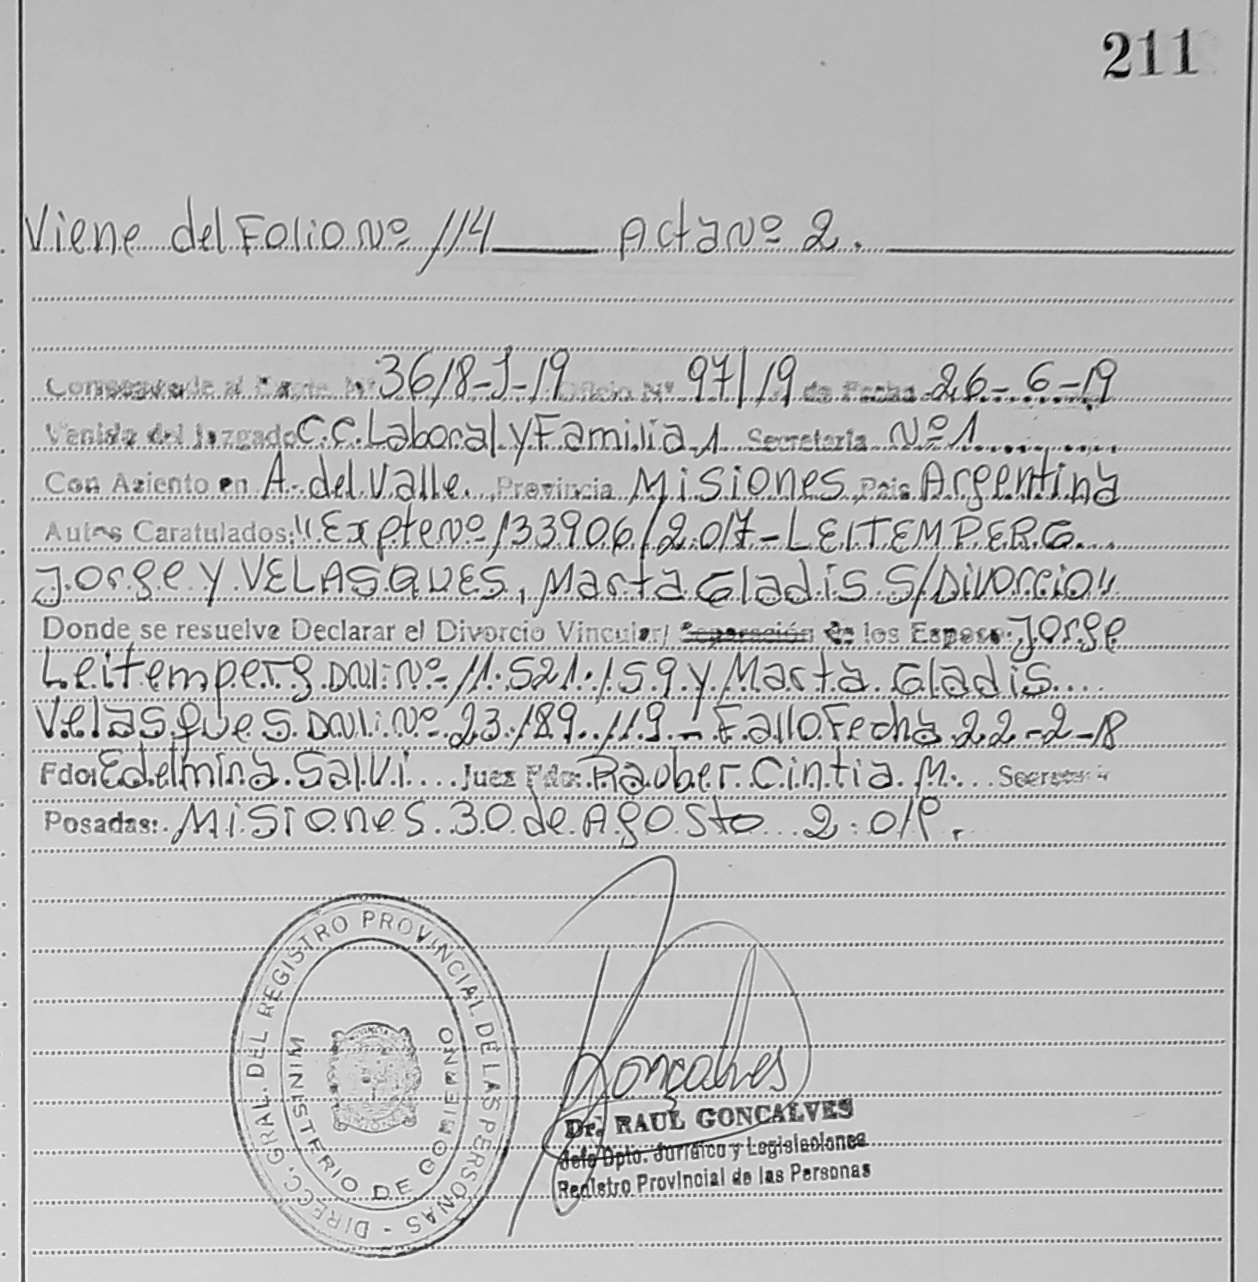 211
Viene del Folio Nº 114 Acta Nº 2.
Corresponde al Expte. Nº 3618-J-19 Oficio Nº 97/19 de Fecha 26-6-19
Venido del Juzgado C.C. Laboral y Familia 1 Secretaria Nº 1
Con Asiento en A. del Valle, Provincia Misiones, Pais Argentina
Autos Caratulados: "Expte Nº 133906/2.017 - LEITEMPERG
Jorge Y VELASQUES, Marta Gladis S/Divorcio"
Donde se resuelve Declarar el Divorcio Vincular/ Separación de los Esposos: Jorge
Leitemperg DNI: Nº 11.521.159 y Marta Gladis
Velasques DNI: Nº 23.189.119 - Fallo Fecha 22-2-18
Fdo: Edelmina Salvi Juez Fdo: Rauber Cintia M. Secretaria
Posadas: Misiones 30 de Agosto 2.019.
DIRECC. GRAL. DEL REGISTRO PROVINCIAL DE LAS PERSONAS -
MINISTERIO DE GOBIERNO
Gonçalves
Dr. RAUL GONCALVES
Jefe Dpto. Jurídico y Legislaciones
Registro Provincial de las Personas